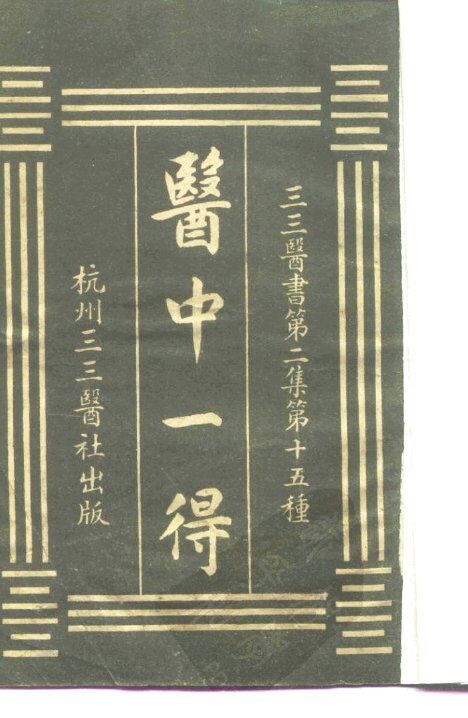 三三醫書第二集第十五種
醫中一得
杭州三三醫社出版